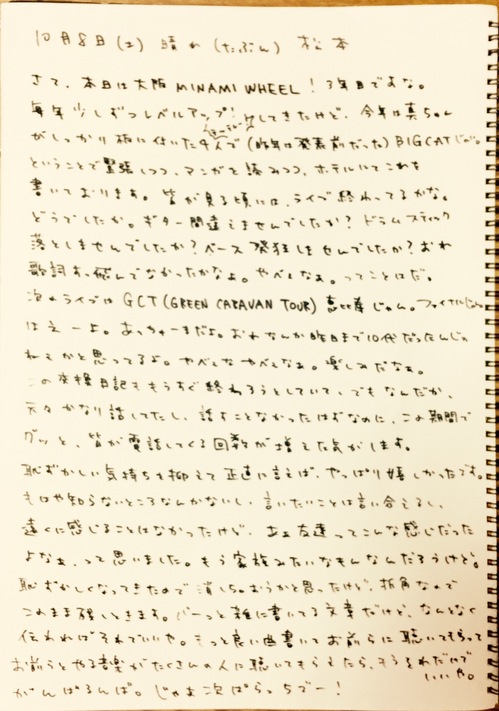 10月8日(土) 晴れ(たぶん) 松本
さて、本日は大阪 MINAMI WHEEL! 3年目ですよな。
毎年少しずつレベルアップ してきたけど、今年は真ちゃん
がしっかり板に付いた4人で(昨年は発表前だった)BIGCATじゃい。
ということで緊張しつつ、マンガを読みつつ、ホテルにてこれを
書いております。皆が見る頃には、ライブ終わってるかな。
どうでしたか。ギター間違えませんでしたか?ドラムスティック
落としませんでしたか?ベース発狂しませんでしたか?おれ
歌詞すっ飛んでなかったかなぁ。やべえなぁ。ってことはだ。
次のライブは GCT(GREEN CARAVAN TOUR)恵比寿じゃん。ファイナルじゃん。
はえーよ。あっちゅーまだよ。おれなんか昨日まで10代だったんじゃ
ねえかと思ってるよ。やべえなやべえなぁ。楽しみだなぁ。
この交換日記ももうすぐ終わろうとしていて、でもなんだか、
元々かなり話してたし、話すことなかったはずなのに、この期間で
グッと、皆が電話してくる回数が増えた気がします。
恥ずかしい気持ちを抑えて正直に言えば、やっぱり嬉しかったです。
もはや知らないところなんかないし、言いたいことは言い合えるし、
遠くに感じることはなかったけど、あぁ友達ってこんな感じだった
よなぁ、って思いました。もう家族みたいなもんなんだろうけど。
恥ずかしくなってきたので消しちゃおうかと思ったけど、折角なんで
このまま残しときます。バーっと雑に書いてる文章だけど、なんとなく
伝わればそれでいいや。もっと良い曲書いてお前らに聴いてもらって
お前らとやる音楽がたくさんの人に聴いてもらえたら、もうそれだけで
いいや。
がんばるんば。じゃあ次ぱらっちでー!